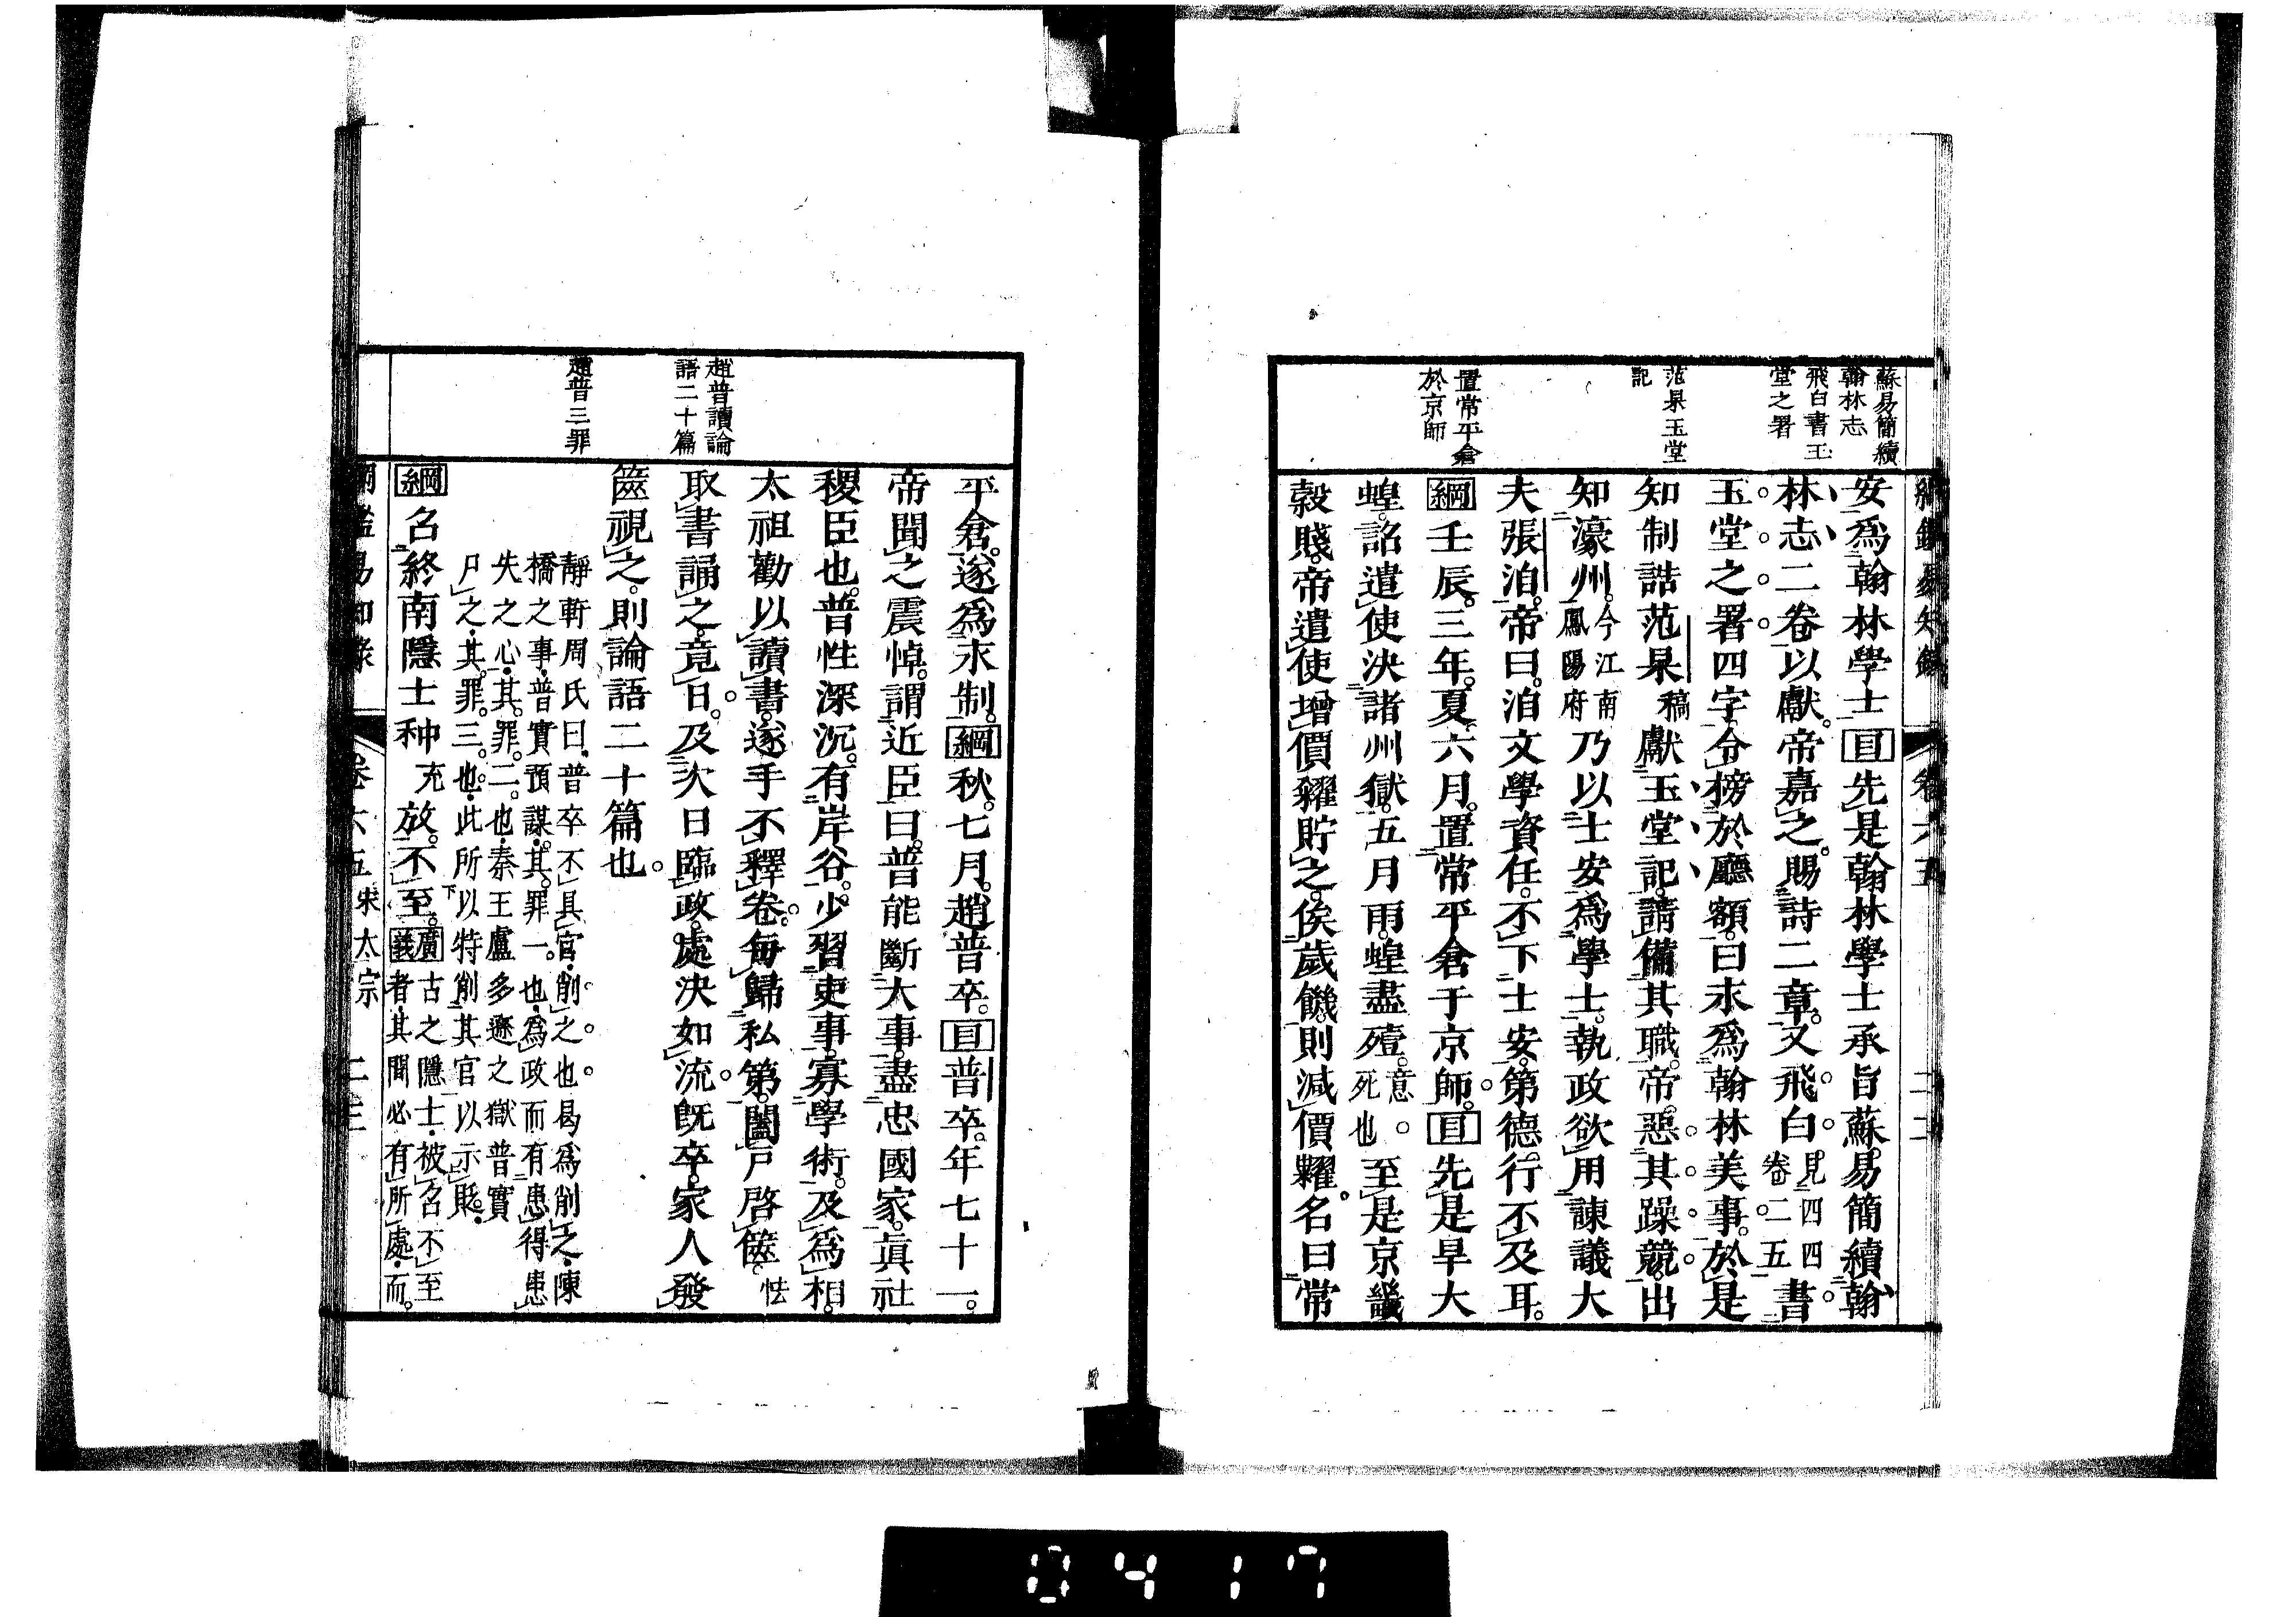 蘇易簡續
翰林志
飛白書玉
堂之署
范杲玉堂
記
置常平倉
於京師
安爲翰林學士目先是翰林學士承旨蘇易簡續翰
林志二卷以獻帝嘉之賜詩二章又飛白見四四卷二五書
玉堂之署四字令榜於廳額曰永爲翰林美事於是
知制誥范杲稿獻玉堂記請備其職帝惡其躁競出
知濠州今江南鳳陽府乃以士安爲學士執政欲用諫議大
夫張洎帝曰洎文學資任不下士安第德行不及耳
綱壬辰三年夏六月置常平倉于京師目先是旱大
蝗詔遣使決諸州獄五月雨蝗盡殪意死也至是京畿
穀賤帝遣使增價糴貯之俟歲饑則減價糶名曰常
趙普讀論
語二十篇
趙普三罪
平倉遂爲永制綱秋七月趙普卒目普卒年七十一
帝聞之震悼謂近臣曰普能斷大事盡忠國家眞社
稷臣也普性深沉有岸谷少習吏事寡學術及爲相
太祖勸以讀書遂手不釋卷每歸私第闔戸啓篋怯
取書誦之竟日及次日臨政處決如流既卒家人發
篋視之則論語二十篇也
靜軒周氏曰普卒不具官削之也曷爲削之陳
橋之事普實預謀其罪一也爲政而有患得患
失之心其罪二也秦王盧多遜之獄普實
尸之其罪三也此所以特削其官以示貶
綱召終南隱士种充放不至廣義古之隱士被召不至
者其聞必有所處而
綱鑑易知錄 卷六五 宋太宗 二三